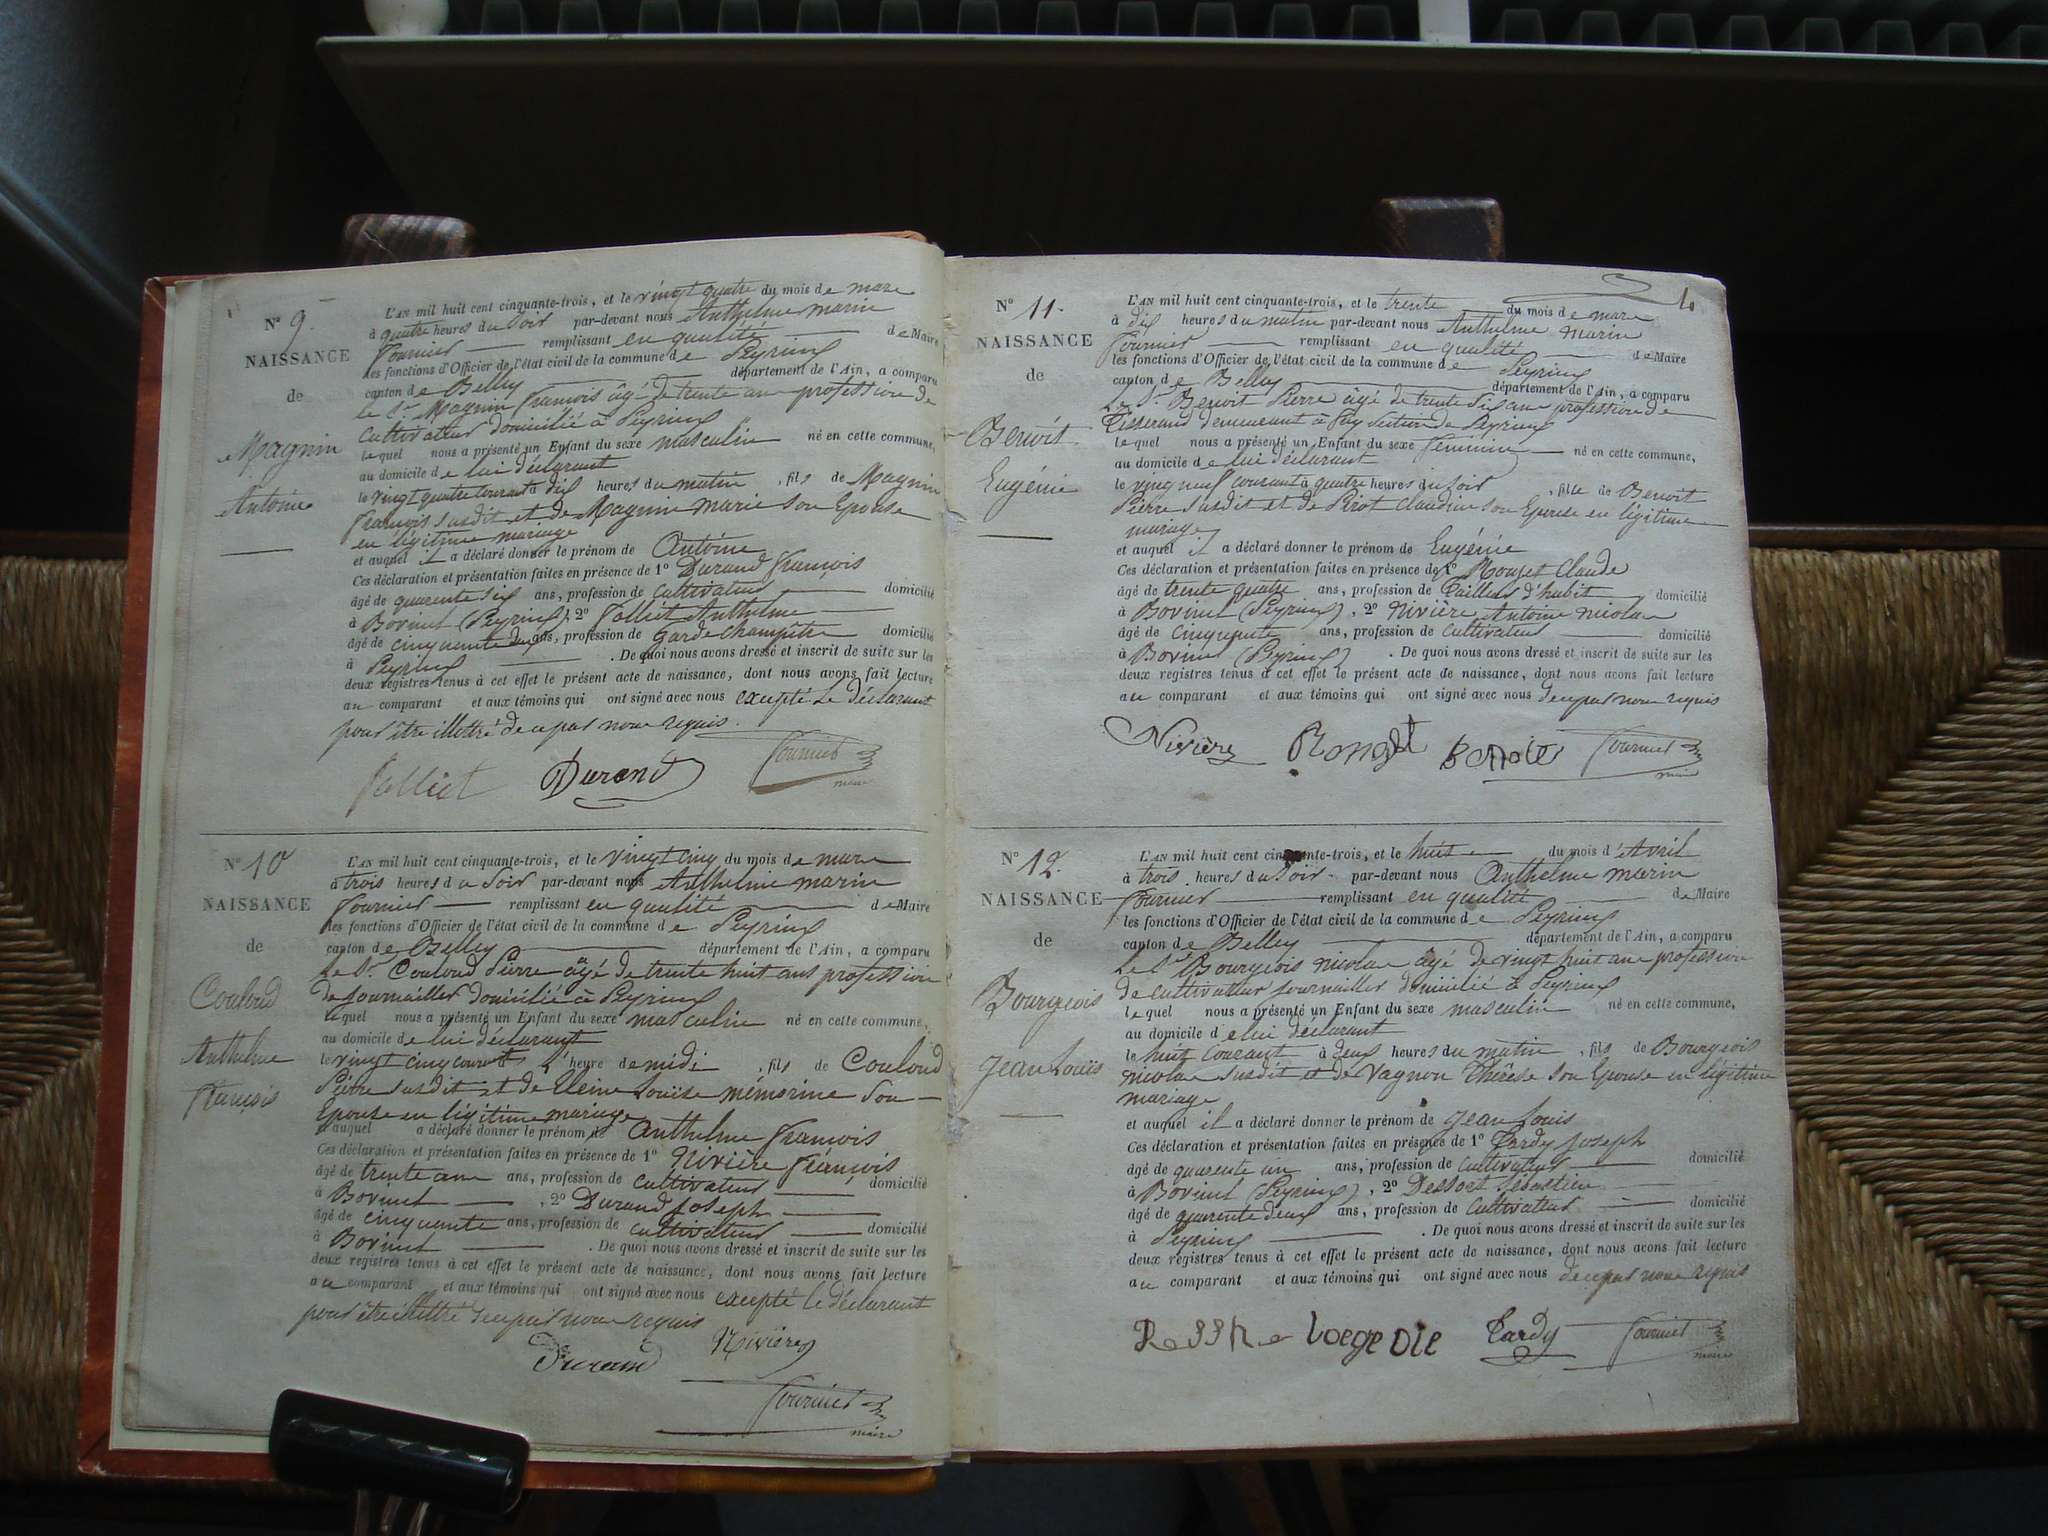 N° 9.
NAISSANCE
de
Magnin
Antoine
L'AN mil huit cent cinquante-trois, et le vingt quatre du mois de mars
à quatre heures du Soir par-devant nous Anthelme marin
Fournier remplissant en qualité de Maire
les fonctions d'Officier de l'état civil de la commune de Peyrieux
canton de Belley département de l'Ain, a comparu
le Sr. Magnin François âgé de trente ans profession de
Cultivateur domicilié à Peyrieux
lequel nous a présenté un Enfant du sexe masculin né en cette commune,
au domicile de lui déclarant
le vingt quatre courant à dix heures du matin , fils de Magnin
François susdit et de Magnin marie son Epouse
en légitime mariage
et auquel il a déclaré donner le prénom de Antoine
Ces déclaration et présentation faites en présence de 1° Durand François
âgé de quarente six ans, profession de Cultivateur domicilié
à Bovinel (Peyrieux), 2° Jolliet Anthelme
âgé de cinquente deux ans, profession de garde champêtre domicilié
à Peyrieux . De quoi nous avons dressé et inscrit de suite sur les
deux registres tenus à cet effet le présent acte de naissance, dont nous avons fait lecture
au comparant et aux témoins qui ont signé avec nous excepté le déclarant
pour être illettré de ce par nous requis.
Jolliet Durand Fournier
maire
N° 10
NAISSANCE
de
Couloud
Anthelme
François
L'AN mil huit cent cinquante-trois, et le vingt cinq du mois de mars
à trois heures du Soir par-devant nous Anthelme marin
Fournier remplissant en qualité de Maire
les fonctions d'Officier de l'état civil de la commune de Peyrieux
canton de Belley département de l'Ain, a comparu
Le Sr. Couloud Pierre âgé de trente huit ans profession
de Journailler domicilié à Peyrieux
lequel nous a présenté un Enfant du sexe masculin né en cette commune,
au domicile de lui déclarant
le vingt cinq courant à l'heure de midi , fils de Couloud
Pierre susdit et de Louise mémorine Son
Epouse en légitime mariage
et auquel a déclaré donner le prénom de Anthelme François
Ces déclaration et présentation faites en présence de 1° Nivière François
âgé de trente ans ans, profession de Cultivateur domicilié
à Bovinel , 2° Durand Joseph
âgé de cinquente ans, profession de cultivateur domicilié
à Bovinel . De quoi nous avons dressé et inscrit de suite sur les
deux registres tenus à cet effet le présent acte de naissance, dont nous avons fait lecture
au comparant et aux témoins qui ont signé avec nous excepté le déclarant
pour être illettré de ce par nous requis
Durand Nivière
Fournier
maire
10
N° 11.
NAISSANCE
de
Benoit
Eugénie
L'AN mil huit cent cinquante-trois, et le trente du mois de mars
à dix heures du matin par-devant nous Anthelme marin
Fournier remplissant en qualité de Maire
les fonctions d'Officier de l'état civil de la commune de Peyrieux
canton de Belley département de l'Ain, a comparu
Le Sr. Benoit Pierre âgé de trente six ans profession de
Tisserand demeurant à Fay section de Peyrieux
lequel nous a présenté un Enfant du sexe féminin né en cette commune,
au domicile de lui déclarant
le vingt neuf courant à quatre heures du soir , fille de Benoit
Pierre susdit et de Pirot Claudine son Epouse en légitime
mariage
et auquel il a déclaré donner le prénom de Eugénie
Ces déclaration et présentation faites en présence de 1° Rouget Claude
âgé de trente quatre ans, profession de Tailleur d'habit domicilié
à Bovinel (Peyrieux) , 2° Nivière Antoine nicolas
âgé de cinquente ans, profession de cultivateur domicilié
à Bovinel (Peyrieux) . De quoi nous avons dressé et inscrit de suite sur les
deux registres tenus à cet effet le présent acte de naissance, dont nous avons fait lecture
au comparant et aux témoins qui ont signé avec nous de ce par nous requis
Nivière Benoit Fournier
maire
N° 12.
NAISSANCE
de
Bourgeois
Jean Louis
L'AN mil huit cent cinquante-trois, et le huit du mois d'Avril
à trois heures du Soir par-devant nous Anthelme marin
Fournier remplissant en qualité de Maire
les fonctions d'Officier de l'état civil de la commune de Peyrieux
canton de Belley département de l'Ain, a comparu
Le Sr. Bourgeois nicolas âgé de vingt huit ans profession
de cultivateur journailler domicilié à Peyrieux
lequel nous a présenté un Enfant du sexe masculin né en cette commune,
au domicile de lui déclarant
le huit courant à deux heures du matin , fils de Bourgeois
nicolas susdit et de Vagnon Thérèse son Epouse en légitime
mariage
et auquel il a déclaré donner le prénom de Jean Louis
Ces déclaration et présentation faites en présence de 1° Tardy Joseph
âgé de quarente un ans, profession de cultivateur domicilié
à Bovinel (Peyrieux) , 2° Dessort Sébastien
âgé de quarente deux ans, profession de cultivateur domicilié
à Peyrieux . De quoi nous avons dressé et inscrit de suite sur les
deux registres tenus à cet effet le présent acte de naissance, dont nous avons fait lecture
au comparant et aux témoins qui ont signé avec nous de ce par nous requis
Tardy Fournier
maire